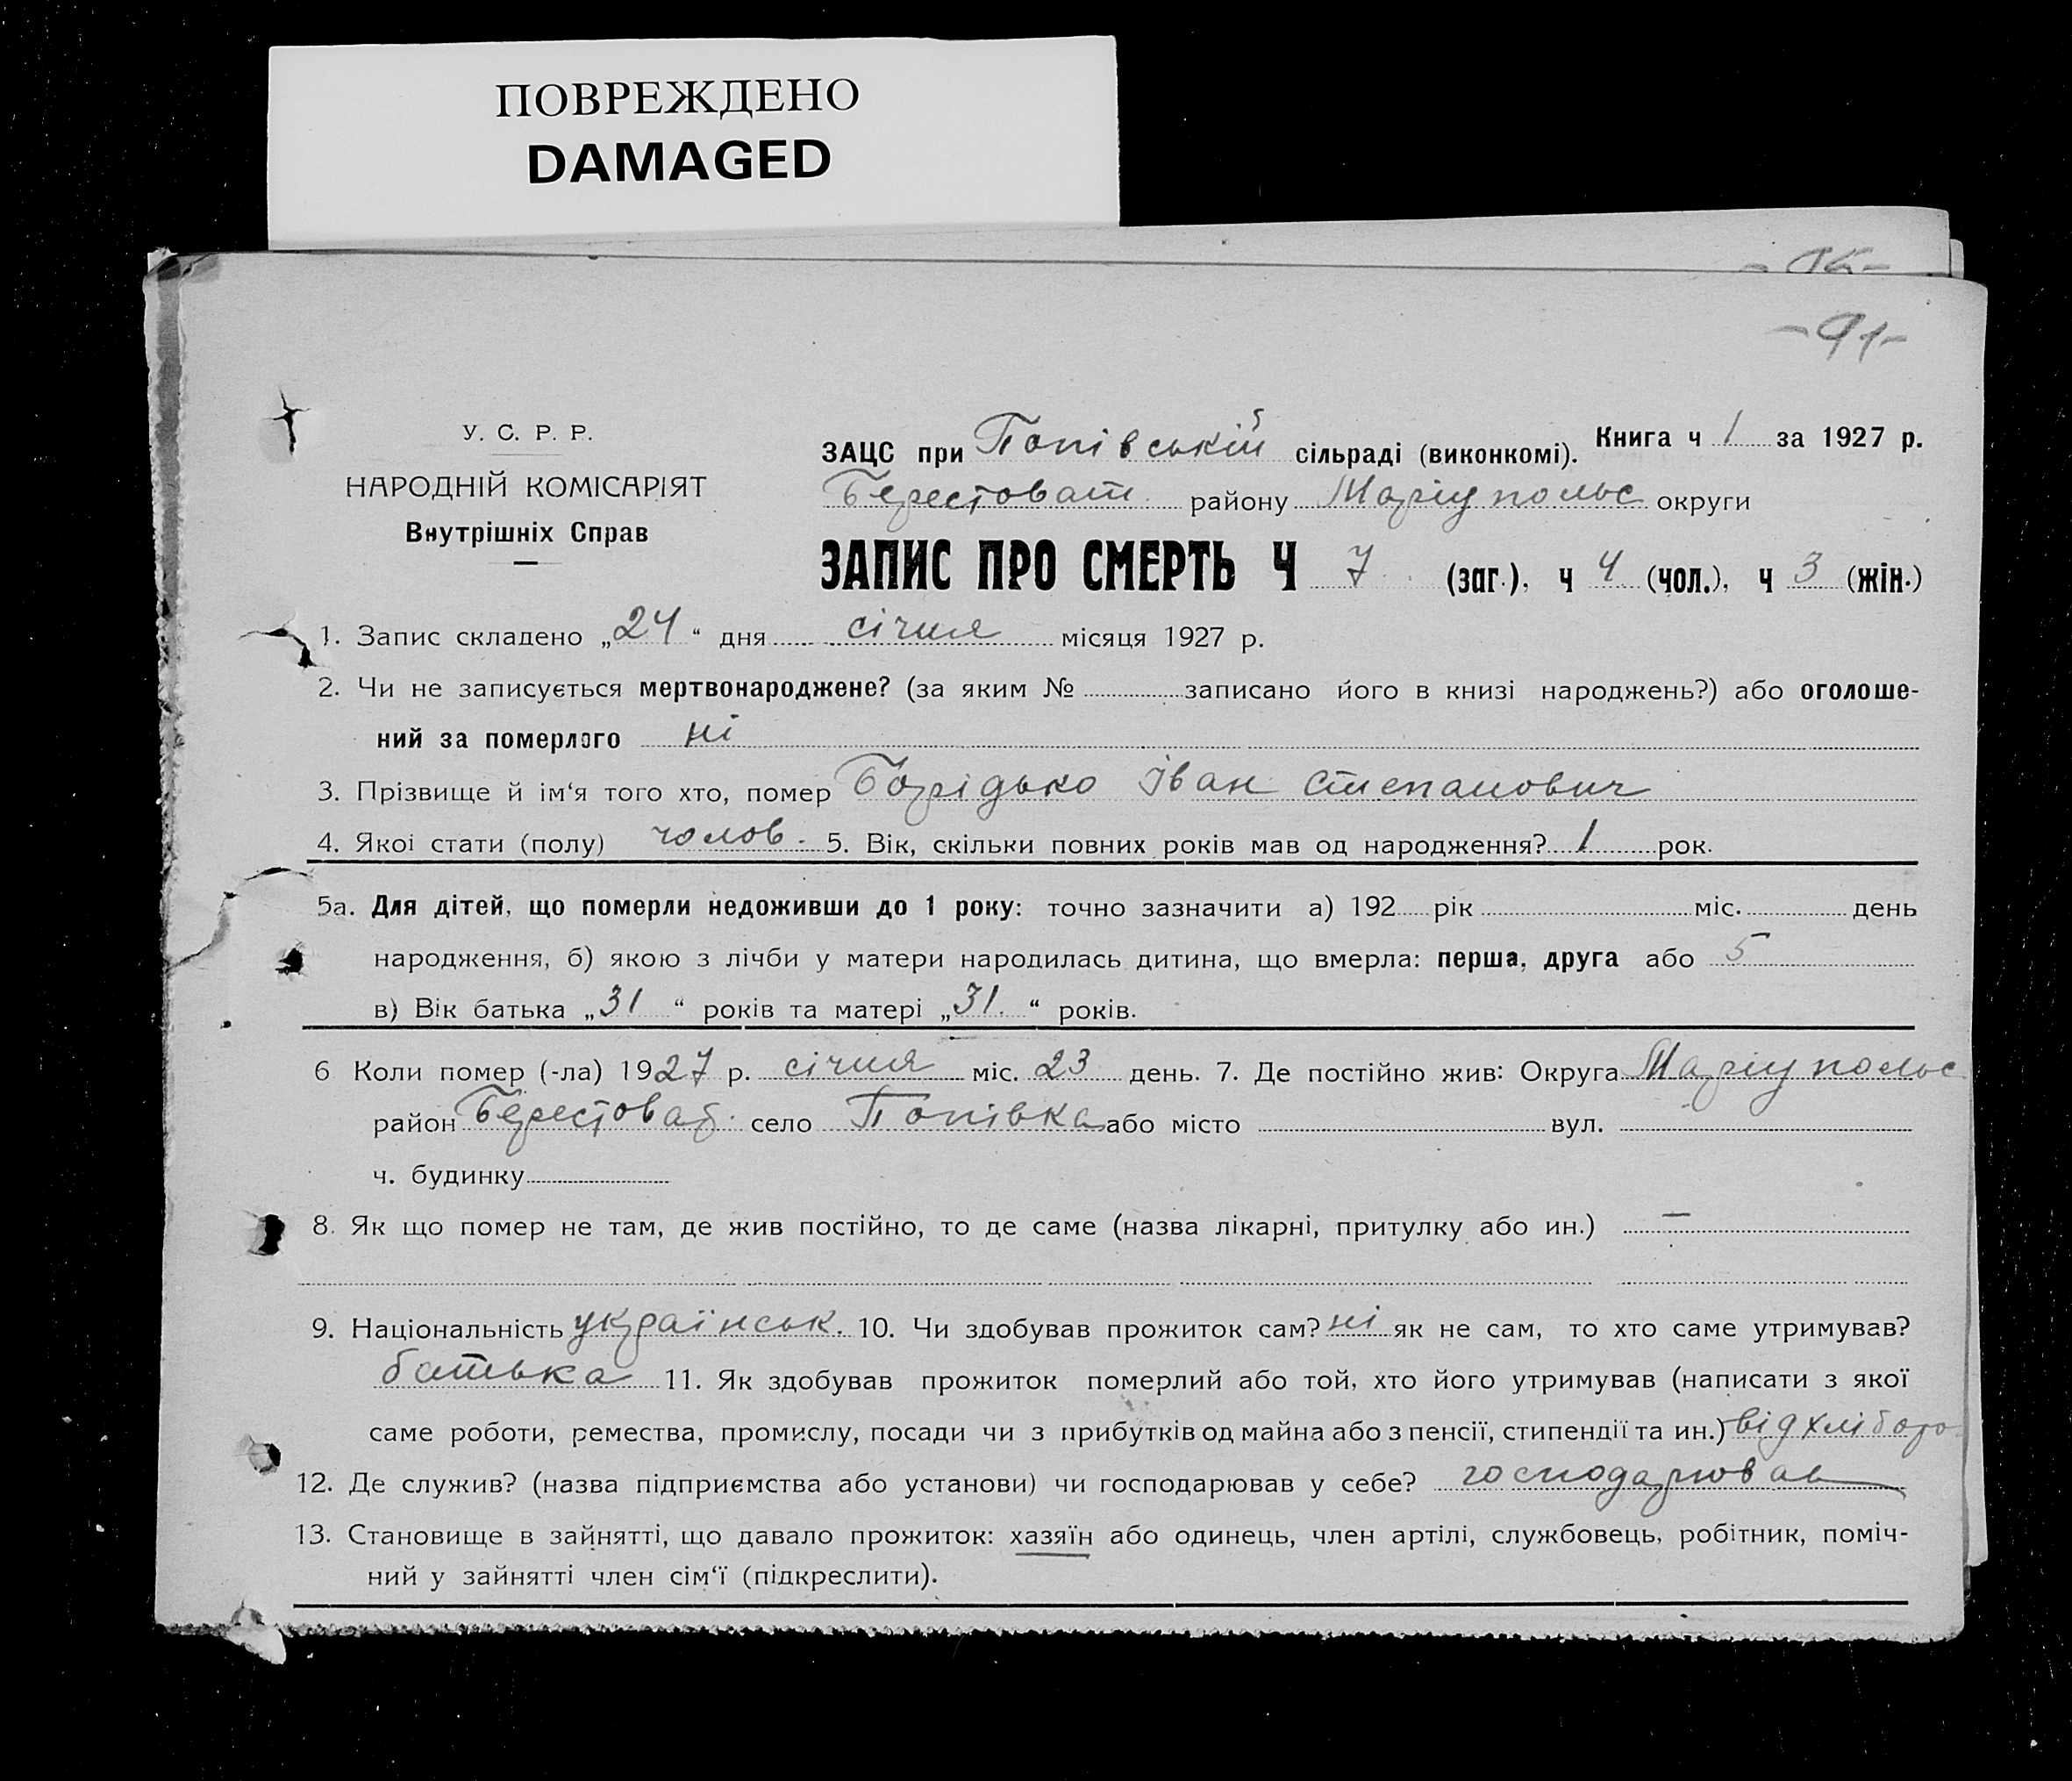 ПОВРЕЖДЕНО
DAMAGED
-91-
У. С. Р. Р.
НАРОДНІЙ КОМІСАРІЯТ
Внутрішніх Справ
ЗАЦС при Попівській сільраді (виконкомі). Книга ч 1 за 1927 р.
Берестоват. району Маріупольс округи
ЗАПИС ПРО СМЕРТЬ Ч 7 (заг.), ч 4 (чол.), ч 3 (жін.)
1. Запис складено „24“ дня січня місяця 1927 р.
2. Чи не записується мертвонароджене? (за яким № записано його в книзі народжень?) або оголоше-
ний за померлого ні
3. Прізвище й ім‘я того хто, помер Борідько Іван Степанович
4. Якої стати (полу) чолов. 5. Вік, скільки повних років мав од народження? 1 рок.
5а. Для дітей, що померли недоживши до 1 року: точно зазначити а) 192 рік міс. день
народження, б) якою з лічби у матери народилась дитина, що вмерла: перша, друга або 5
в) Вік батька „31“ років та матері „31.“ років.
6 Коли помер (-ла) 1927 р. січня міс. 23 день. 7. Де постійно жив: Округа Маріупольс
район Берестоват. село Попівка або місто вул.
ч. будинку
8. Як що помер не там, де жив постійно, то де саме (назва лікарні, притулку або ин.) —
9. Національність українськ. 10. Чи здобував прожиток сам? ні як не сам, то хто саме утримував?
батька 11. Як здобував прожиток померлий або той, хто його утримував (написати з якої
саме роботи, ремества, промислу, посади чи з прибутків од майна або з пенсії, стипендії та ин.) від хліборо
12. Де служив? (назва підприємства або установи) чи господарював у себе? господарював
13. Становище в зайнятті, що давало прожиток: хазяїн або одинець, член артілі, службовець, робітник, поміч-
ний у зайнятті член сім‘ї (підкреслити).